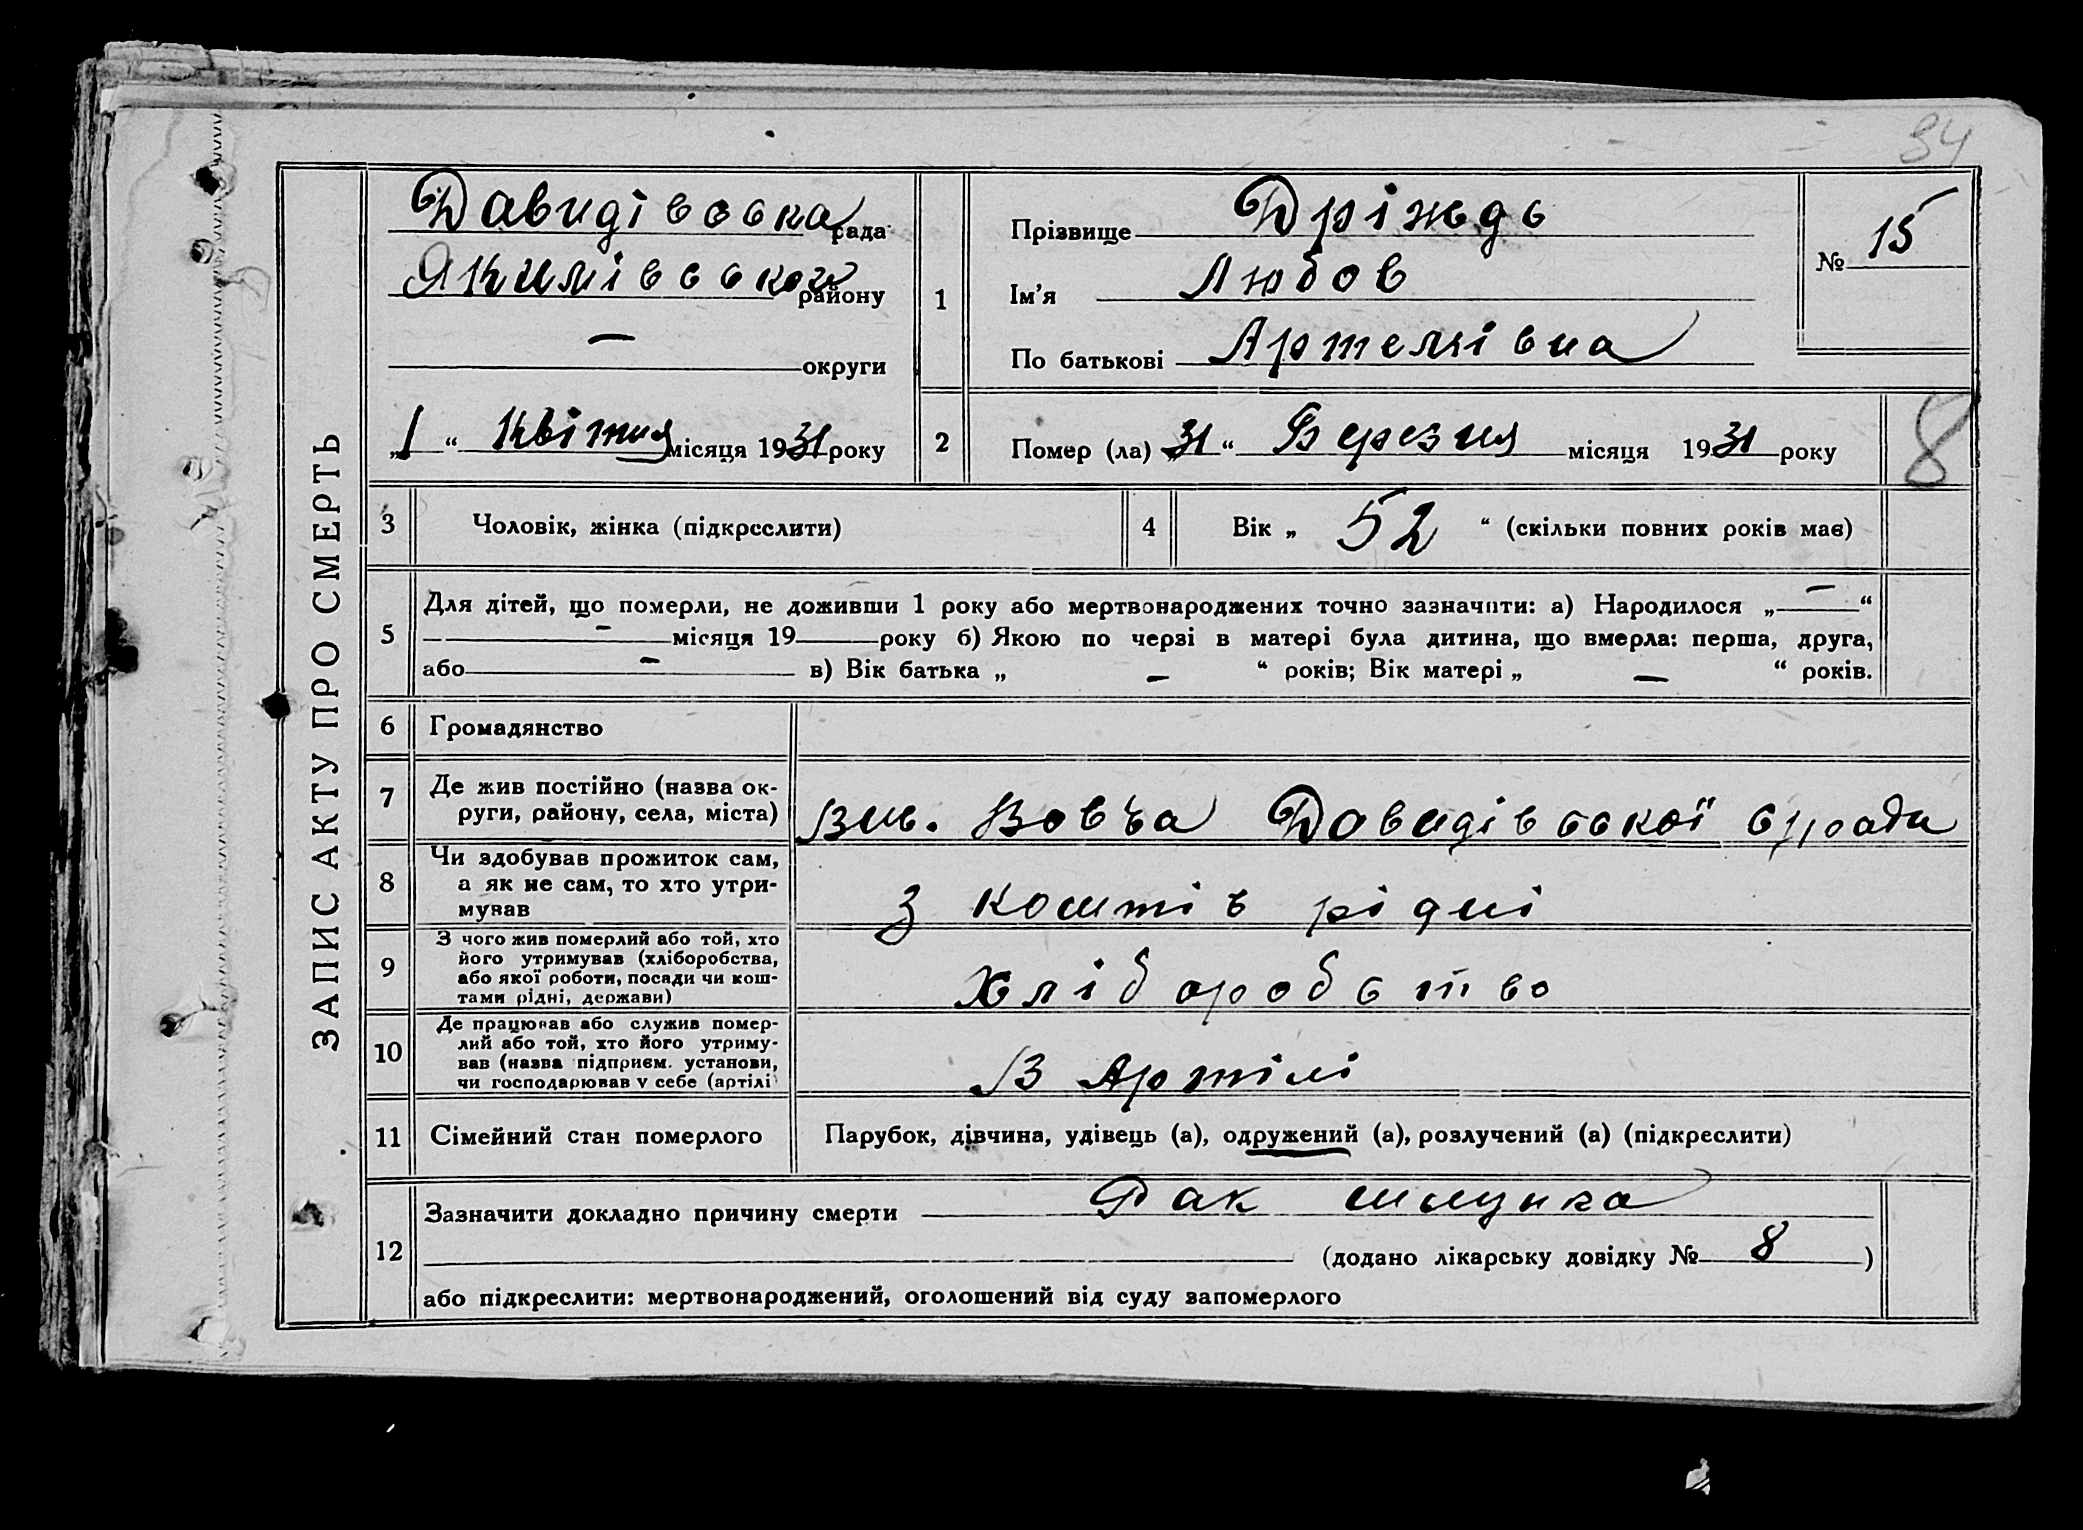 94
ЗАПИС АКТУ ПРО СМЕРТЬ
Давидівська рада
Якимівського району
— округи
„1“ Квітня місяця 1931 року
1
Прізвище Дріждь
Ім'я Любов
По батькові Артемівна
№ 15
2
Помер (ла) „31“ Березня місяця 1931 року
8
3 Чоловік, жінка (підкреслити)
4 Вік „52“ (скільки повних років має)
5 Для дітей, що померли, не доживши 1 року або мертвонароджених точно зазначити: а) Народилося „—“
— місяця 19 року б) Якою по черзі в матері була дитина, що вмерла: перша, друга,
або — в) Вік батька „ — “ років; Вік матері „ — “ років.
6 Громадянство
7 Де жив постійно (назва ок-
руги, району, села, міста)
Вовча Давидівської с/ради
8 Чи здобував прожиток сам,
а як не сам, то хто утри-
мував
З коштів рідні
9 З чого жив померлий або той, хто
його утримував (хліборобства,
або якої роботи, посади чи кош-
тами рідні, держави)
Хліборобство
10 Де працював або служив помер-
лий або той, хто його утриму-
вав (назва підприєм. установи,
чи господарював у себе (артілі
В Артілі
11 Сімейний стан померлого
Парубок, дівчина, удівець (а), одружений (а), розлучений (а) (підкреслити)
12 Зазначити докладно причину смерти Рак шлунка
(додано лікарську довідку № 8)
або підкреслити: мертвонароджений, оголошений від суду запомерлого